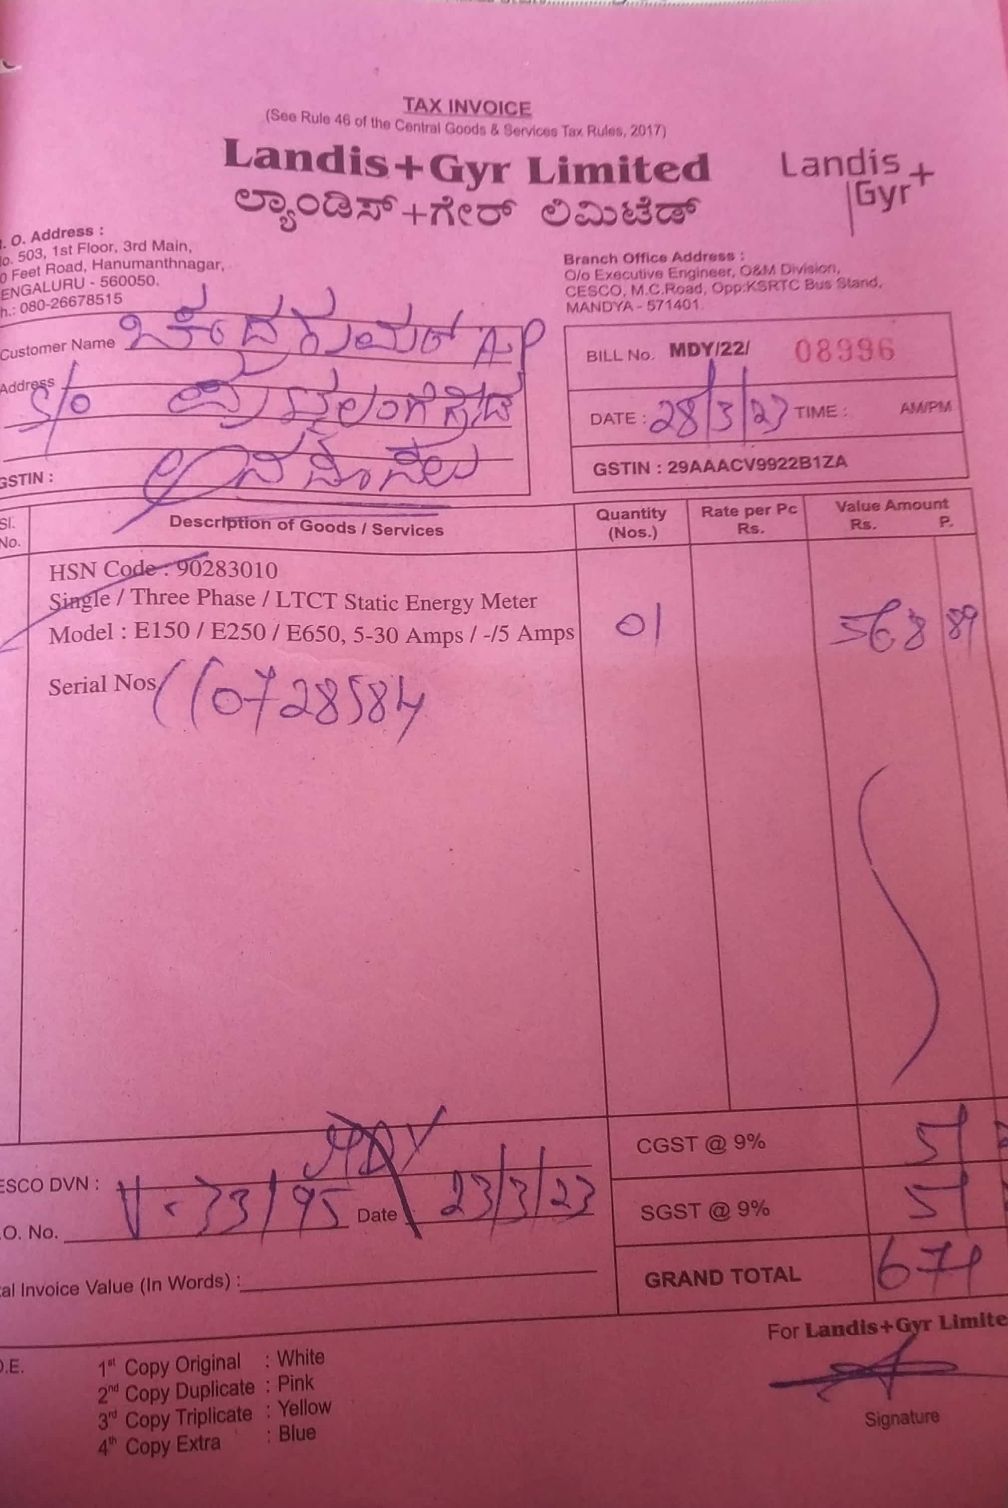 TAX INVOICE
(See Rule 46 of the Central Goods & Services Tax Rules, 2017)
Landis+Gyr Limited
Landis+
Gyr+
ಲ್ಯಾಂಡಿಸ್+ಗೇರ್ ಲಿಮಿಟೆಡ್
. O. Address :
o. 503, 1st Floor, 3rd Main,
0 Feet Road, Hanumanthnagar,
ENGALURU - 560050.
h.: 080-26678515
Branch Office Address :
O/o Executive Engineer, O&M Division,
CESCO, M.C.Road, Opp:KSRTC Bus Stand,
MANDYA - 571401.
Customer Name A.P
Address S/o
GSTIN :
BILL No. MDY/22/ 08996
DATE : 28/3/23 TIME : AM/PM
GSTIN : 29AAACV9922B1ZA
Sl. No. Description of Goods / Services Quantity (Nos.) Rate per Pc Rs. Value Amount Rs. P.
HSN Code : 90283010
Single / Three Phase / LTCT Static Energy Meter
Model : E150 / E250 / E650, 5-30 Amps / -/5 Amps 01 568 89
Serial Nos 110728584
MDY
CGST @ 9% 51
ESCO DVN :
SGST @ 9% 51
.O. No. Date 23/3/23
GRAND TOTAL 671
tal Invoice Value (In Words) :
For Landis+Gyr Limite
O.E.
1st Copy Original : White
2nd Copy Duplicate : Pink
3rd Copy Triplicate : Yellow
4th Copy Extra : Blue
Signature